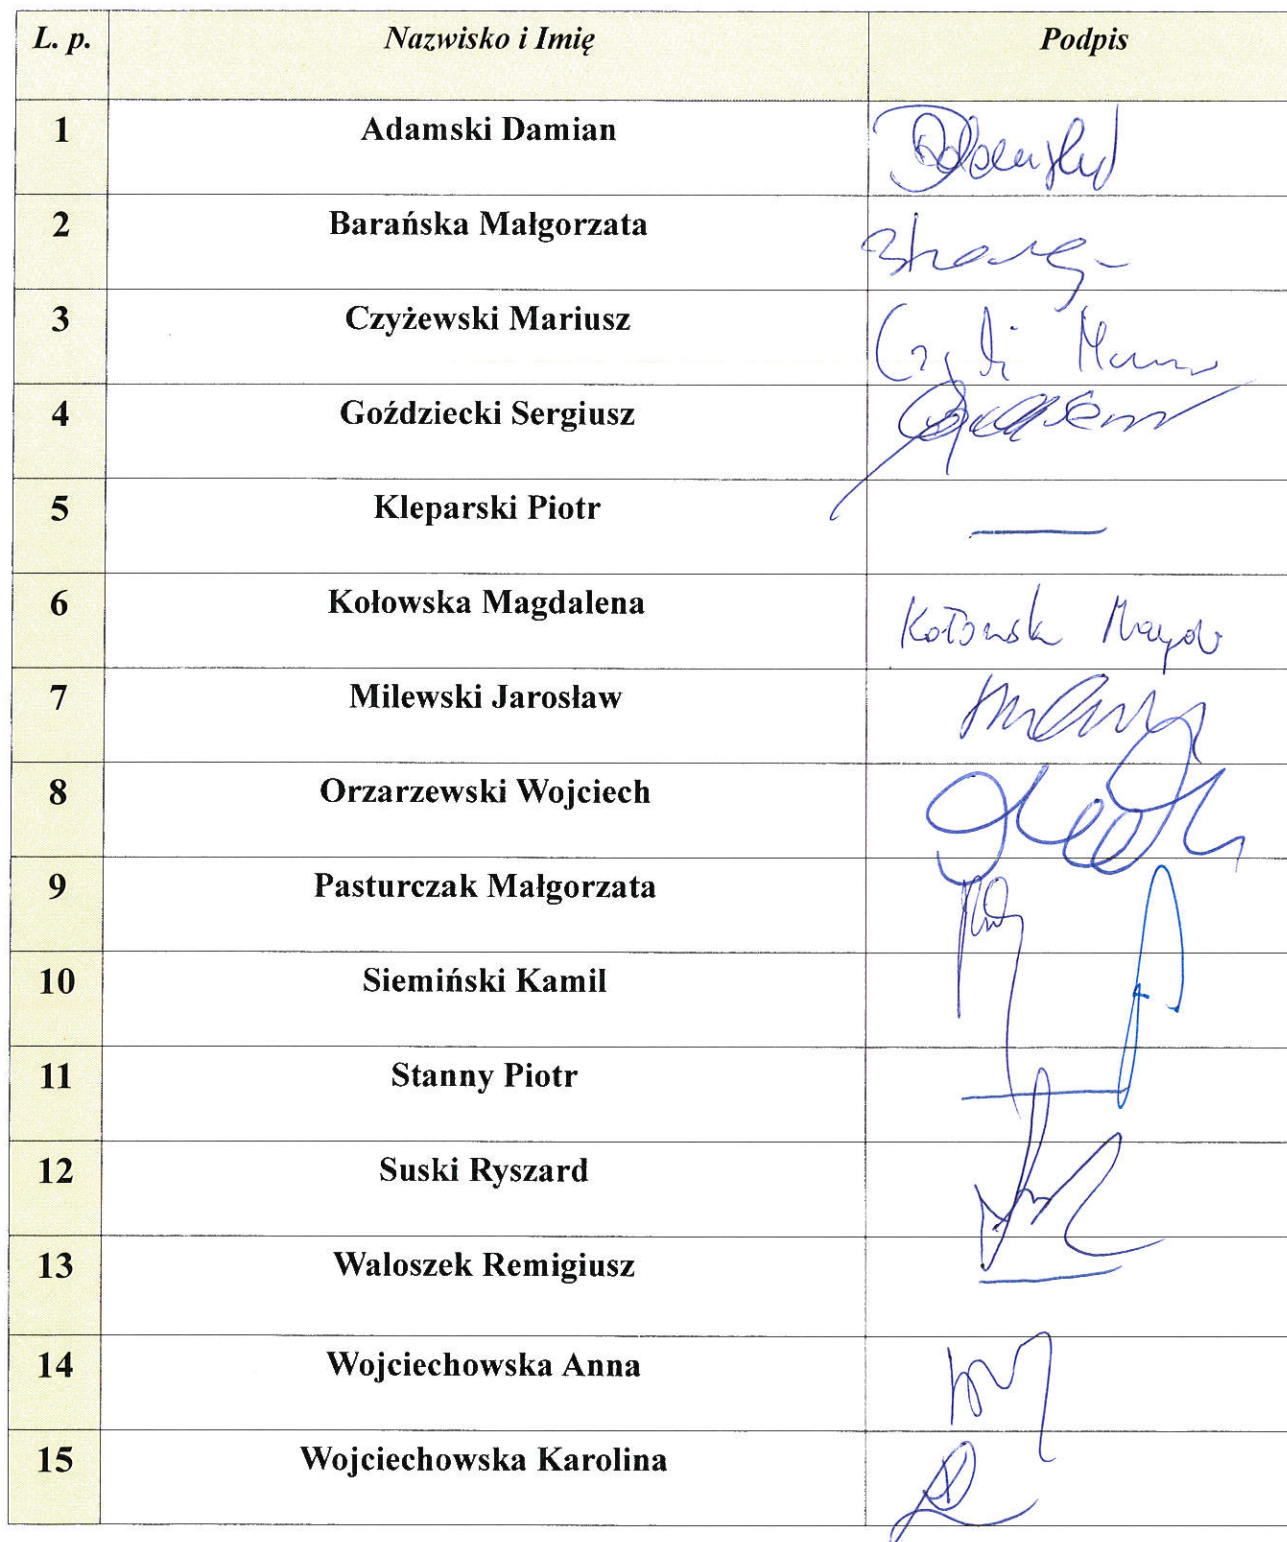 L. p. Nazwisko i Imię Podpis
1 Adamski Damian
2 Barańska Małgorzata
3 Czyżewski Mariusz
4 Goździecki Sergiusz
5 Kleparski Piotr —
6 Kołowska Magdalena
7 Milewski Jarosław
8 Orzarzewski Wojciech
9 Pasturczak Małgorzata
10 Siemiński Kamil
11 Stanny Piotr —
12 Suski Ryszard
13 Waloszek Remigiusz —
14 Wojciechowska Anna
15 Wojciechowska Karolina